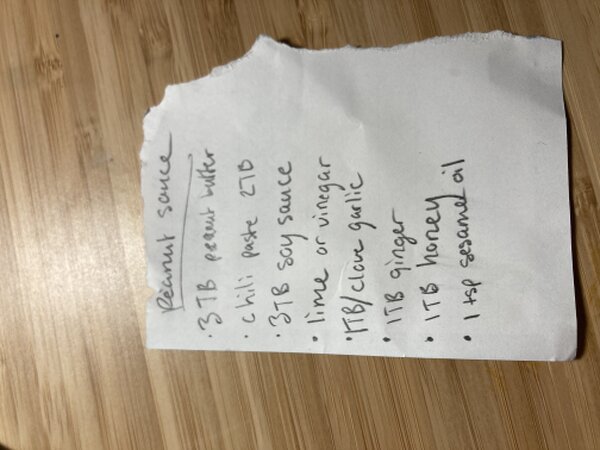 Peanut sauce
• 3TB peanut butter
• chili paste 2TB
• 3TB soy sauce
• lime or vinegar
• 1TB/clove garlic
• 1TB ginger
• 1TB honey
• 1 tsp sesame oil